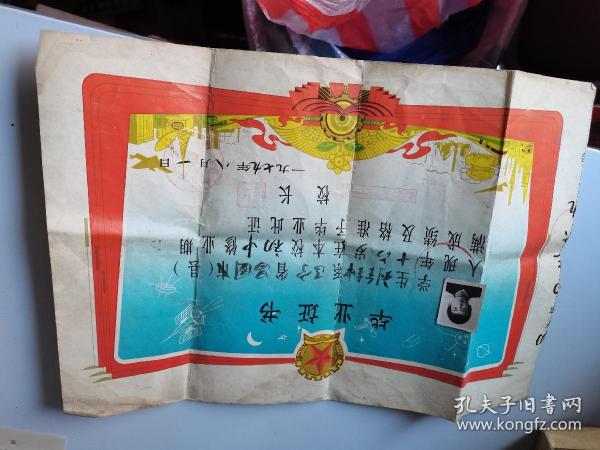 毕业证书
学生刘钟系辽宁省昌图市（县）
人现年十六岁在本校初中修业期
满成绩及格准予毕业此证
校长
一九七九年八月一日
孔夫子旧书网
www.kongfz.com